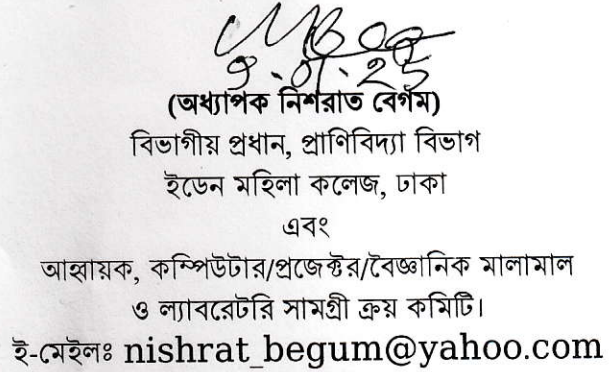 (অধ্যাপক নিশরাত বেগম)
বিভাগীয় প্রধান, প্রাণিবিদ্যা বিভাগ
ইডেন মহিলা কলেজ, ঢাকা
এবং
আহ্বায়ক, কম্পিউটার/প্রজেক্টর/বৈজ্ঞানিক মালামাল
ও ল্যাবরেটরি সামগ্রী ক্রয় কমিটি।
ই-মেইলঃ nishrat_begum@yahoo.com